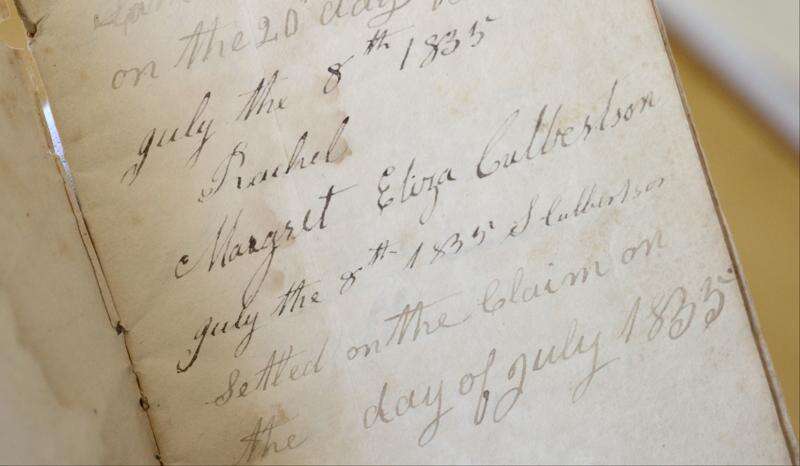 on the 20 day
july the 8th 1835
Rachel
Margret Eliza Culbertson
july the 8th 1835 S Culbertson
Settled on the Claim on
the day of july 1835